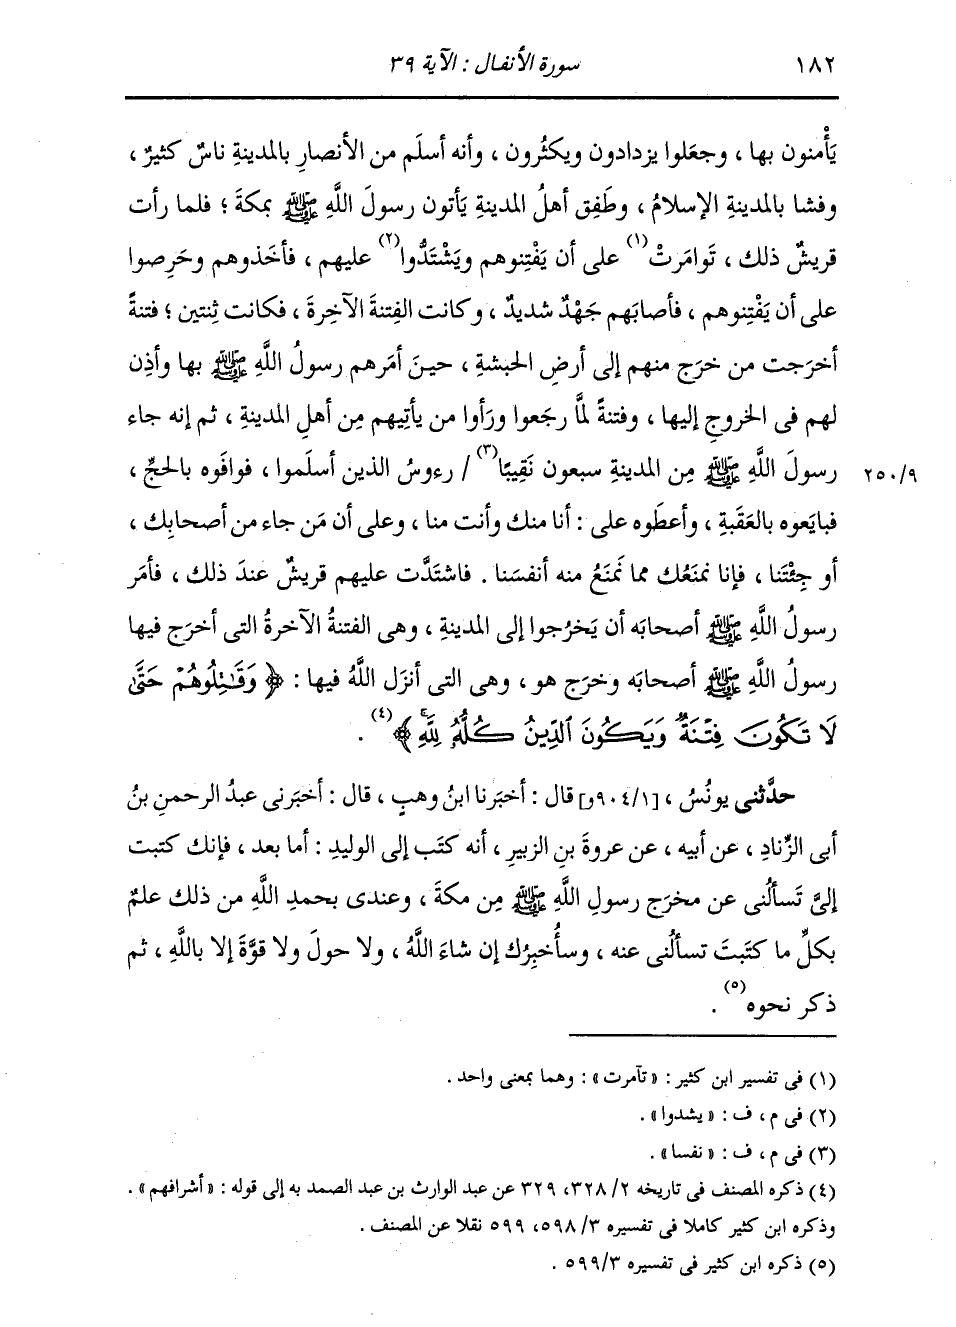 ١٨٢ سورة الأنفال : الآية ٣٩
يَأْمنون بها ، وجعَلوا يزدادون ويكثُرون ، وأنه أسلَم من الأنصارِ بالمدينةِ ناسٌ كثيرٌ ،
وفشا بالمدينةِ الإسلامُ ، وطَفِق أهلُ المدينةِ يَأتون رسولَ اللَّهِ ﷺ بمكةَ ؛ فلما رأت
قريشٌ ذلك ، تَوامَرتْ(١) على أن يَفْتِنوهم ويَشْتَدُّوا(٢) عليهم ، فأخَذوهم وحَرِصوا
على أن يَفْتِنوهم ، فأصابَهم جَهْدٌ شديدٌ ، وكانت الفِتنةَ الآخِرةَ ، فكانت ثِنتين ؛ فتنةً
أخرَجت من خرَج منهم إلى أرضِ الحبشةِ ، حينَ أمَرهم رسولُ اللَّهِ ﷺ بها وأذِن
لهم فى الخروجِ إليها ، وفتنةً لمَّا رجَعوا ورَأوا من يأتِيهم مِن أهلِ المدينةِ ، ثم إنه جاء
رسولَ اللَّهِ ﷺ مِن المدينةِ سبعون نَقِيبًا(٣) / رءوسُ الذين أسلَموا ، فوافَوه بالحجِّ ، ٢٥٠/٩
فبايَعوه بالعَقَبةِ ، وأعطَوه على : أنا منك وأنت منا ، وعلى أن مَن جاء من أصحابِك ،
أو جِئْتَنا ، فإنا نمنَعُك مما نَمنَعُ منه أنفسَنا . فاشتَدَّت عليهم قريشٌ عندَ ذلك ، فأمَر
رسولُ اللَّهِ ﷺ أصحابَه أن يَخرُجوا إلى المدينةِ ، وهى الفتنةُ الآخرةُ التى أخرَج فيها
رسولُ اللَّهِ ﷺ أصحابَه وخرَج هو ، وهى التى أنزَل اللَّهُ فيها : ﴿ وَقَٰتِلُوهُمْ حَتَّىٰ
لَا تَكُونَ فِتْنَةٌ وَيَكُونَ ٱلدِّينُ كُلُّهُۥ لِلَّهِۚ ﴾(٤) .
حدَّثنى يونُسُ ، [٩٠٤/١و] قال : أخبَرنا ابنُ وهبٍ ، قال : أخبَرنى عبدُ الرحمنِ بنُ
أبى الزِّنادِ ، عن أبيه ، عن عروةَ بنِ الزبيرِ ، أنه كتَب إلى الوليدِ : أما بعد ، فإنك كتبت
إلىَّ تَسألُنى عن مخرَج رسولِ اللَّهِ ﷺ مِن مكةَ ، وعندى بحمدِ اللَّهِ من ذلك علمٌ
بكلِّ ما كتَبتَ تسألُنى عنه ، وسأُخبِرُك إن شاءَ اللَّهُ ، ولا حولَ ولا قوَّةَ إلا باللَّهِ ، ثم
ذكر نحوه(٥) .
(١) فى تفسير ابن كثير : « تآمرت » : وهما بمعنى واحد .
(٢) فى م ، ف : « يشدوا » .
(٣) فى م ، ف : « نفسا » .
(٤) ذكره المصنف فى تاريخه ٢/ ٣٢٨، ٣٢٩ عن عبد الوارث بن عبد الصمد به إلى قوله : « أشرافهم » .
وذكره ابن كثير كاملا فى تفسيره ٣/ ٥٩٨، ٥٩٩ نقلا عن المصنف .
(٥) ذكره ابن كثير فى تفسيره ٣/ ٥٩٩ .